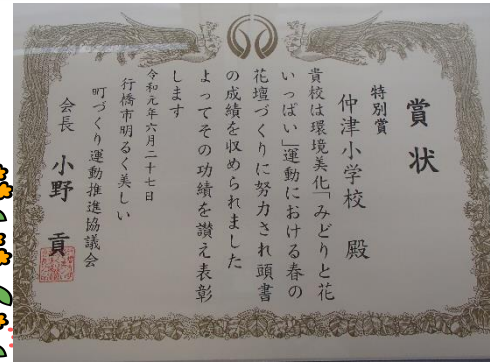 賞状
特別賞
仲津小学校 殿
貴校は環境美化「みどりと花
いっぱい」運動における春の
花壇づくりに努力され頭書
の成績を収められました
よってその功績を讃え表彰
します
令和元年六月二十七日
行橋市明るく美しい
町づくり運動推進協議会
会長 小野 貢